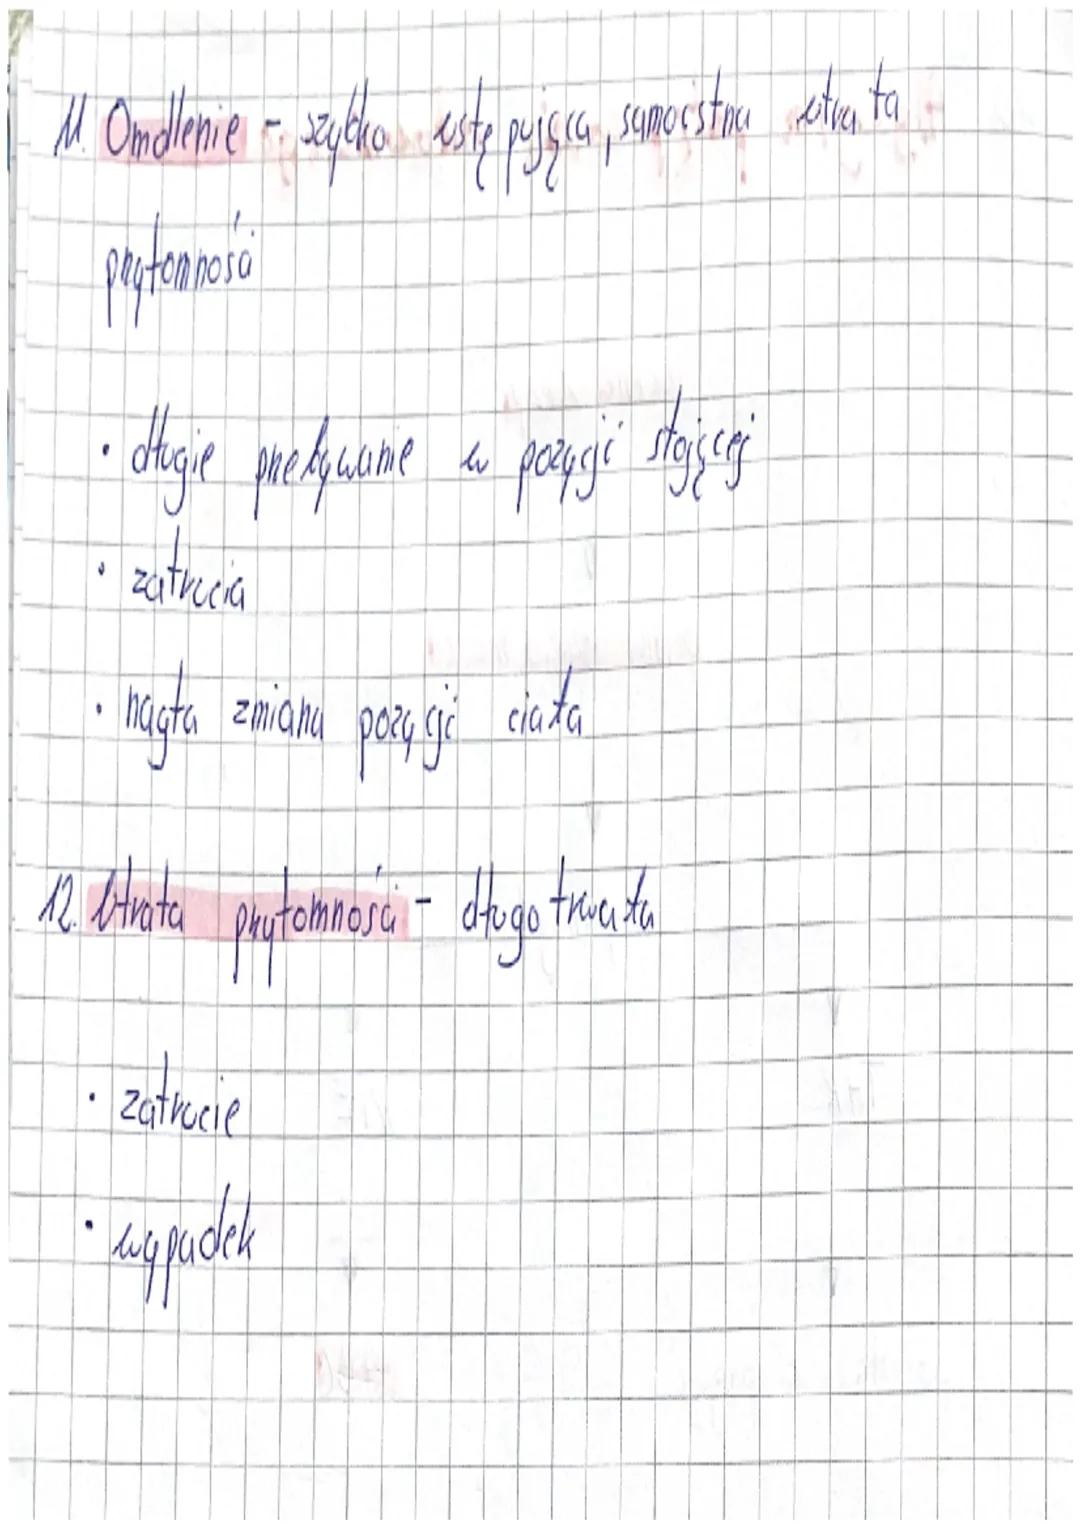 11. Omdlenie - szybko ustępująca, samoistna utrata
przytomności
• długie przebywanie w pozycji stojącej
• zatrucia
• nagła zmiana pozycji ciała
12. Utrata przytomności - długotrwała
• zatrucie
• wypadek